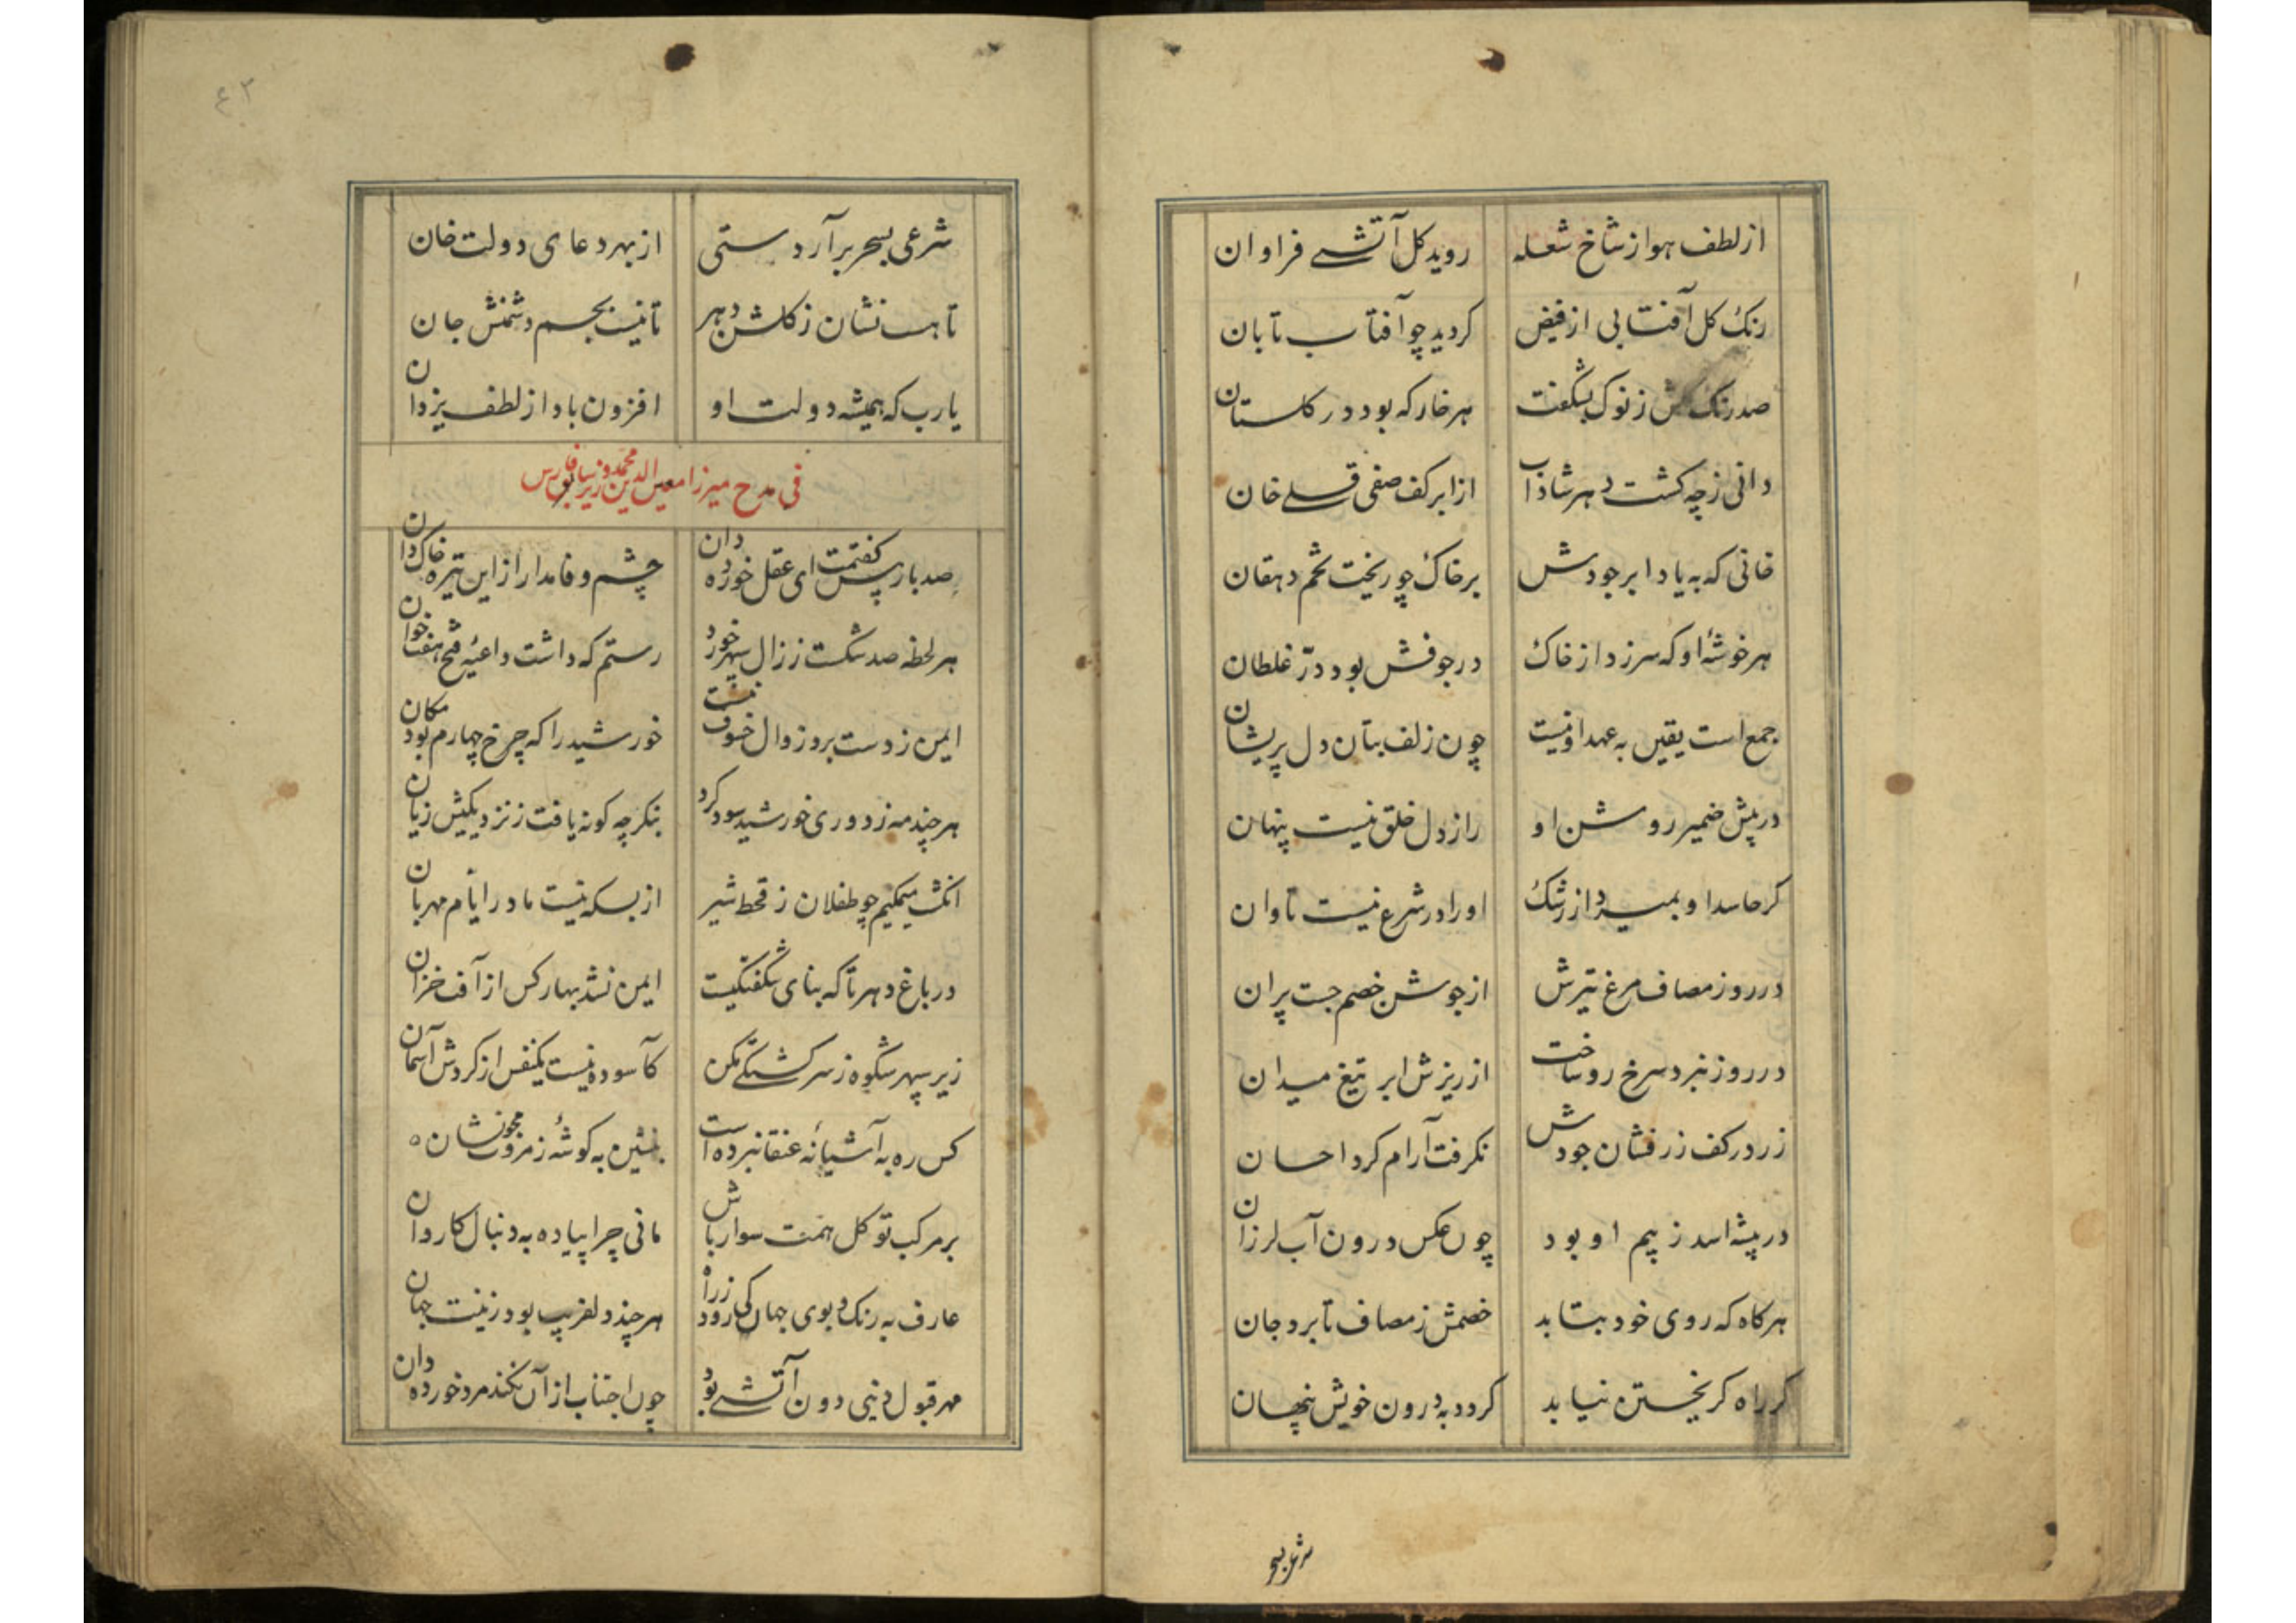 از لطف هوا ز شاخ شعله روید کل آتشے فراوان
رنک کل آفتابی از فیض کردید چو آفتاب تابان
صد رنک کلش ز نوک بشکفت هر خار که بود در کلستان
دانی ز چه کشت دهر شاداب از ابر کف صفی قلے خان
خانی که به یاد ابر جودش بر خاک چو ریخت تخم دهقان
هر خوشهٔ او که سر زد از خاک در جوفش بود درّ غلطان
جمع است یقین به عهد او نیست چون زلف بتان دل پریشان
در پیش ضمیر روشن او راز دل خلق نیست پنهان
کر حاسد او بمیرد از رشک او را در شرع نیست تاوان
در روز مصاف مرغ تیرش از جوشن خصم جست پران
در روز نبرد سرخ رو ساخت از ریزش ابر تیغ میدان
زر در کف زرفشان جودش نکرفت آرام کرد احسان
در بیشه اسد ز بیم او بود چون عکس درون آب لرزان
هر کاه که روی خود بتابد خصمش ز مصاف تا برد جان
کر راه کریختن نیابد کردد به درون خویش پنهان
شرعی بسحر
۴۳
شرعی بسحر برآر دستی از بهر دعای دولت خان
تا هست نشان ز کلشن دهر تا نیست بجسم دشمنش جان
یا رب که همیشه دولت او افزون باد از لطف یزدان
فی مدح میرزا معین الدین محمد وزیر فارس
صد بار بس کفتمت ای عقل خورده دان چشم وفا مدار از این تیره خاک دان
هر لحظه صد شکست ز زال سپهر خورد رستم که داشت داعیه فتح هفتخوان
ایمن ز دست برد زوال خسوف نیست خورشید را که چرخ چهارم بود مکان
هر چند مه ز دوری خورشید سود کرد بنکر چه کونه یافت ز نزدیکیش زیان
انکشت میمکیم چو طفلان ز قحط شیر از بسکه نیست مادر ایّام مهربان
در باغ دهر تا که بنای شکفتکیست ایمن نشد بهار کس از آفت خزان
زیر سپهر شکوه ز سرکشتکے مکن کآسوده نیست یکنفس از کردش آسمان
کس ره به آشیانهٔ عنقا نبرده است بنشین به کوشهٔ ز مروت مجو نشان
بر مرکب توکل همت سوار باش مانی چرا پیاده به دنبال کاروان
عارف به رنک و بوی جهان کی رود ز راه هر چند دلفریب بود زینت جهان
مهر قبول دنیی دون آتشے بود چون اجتناب از آن نکند مرد خورده دان